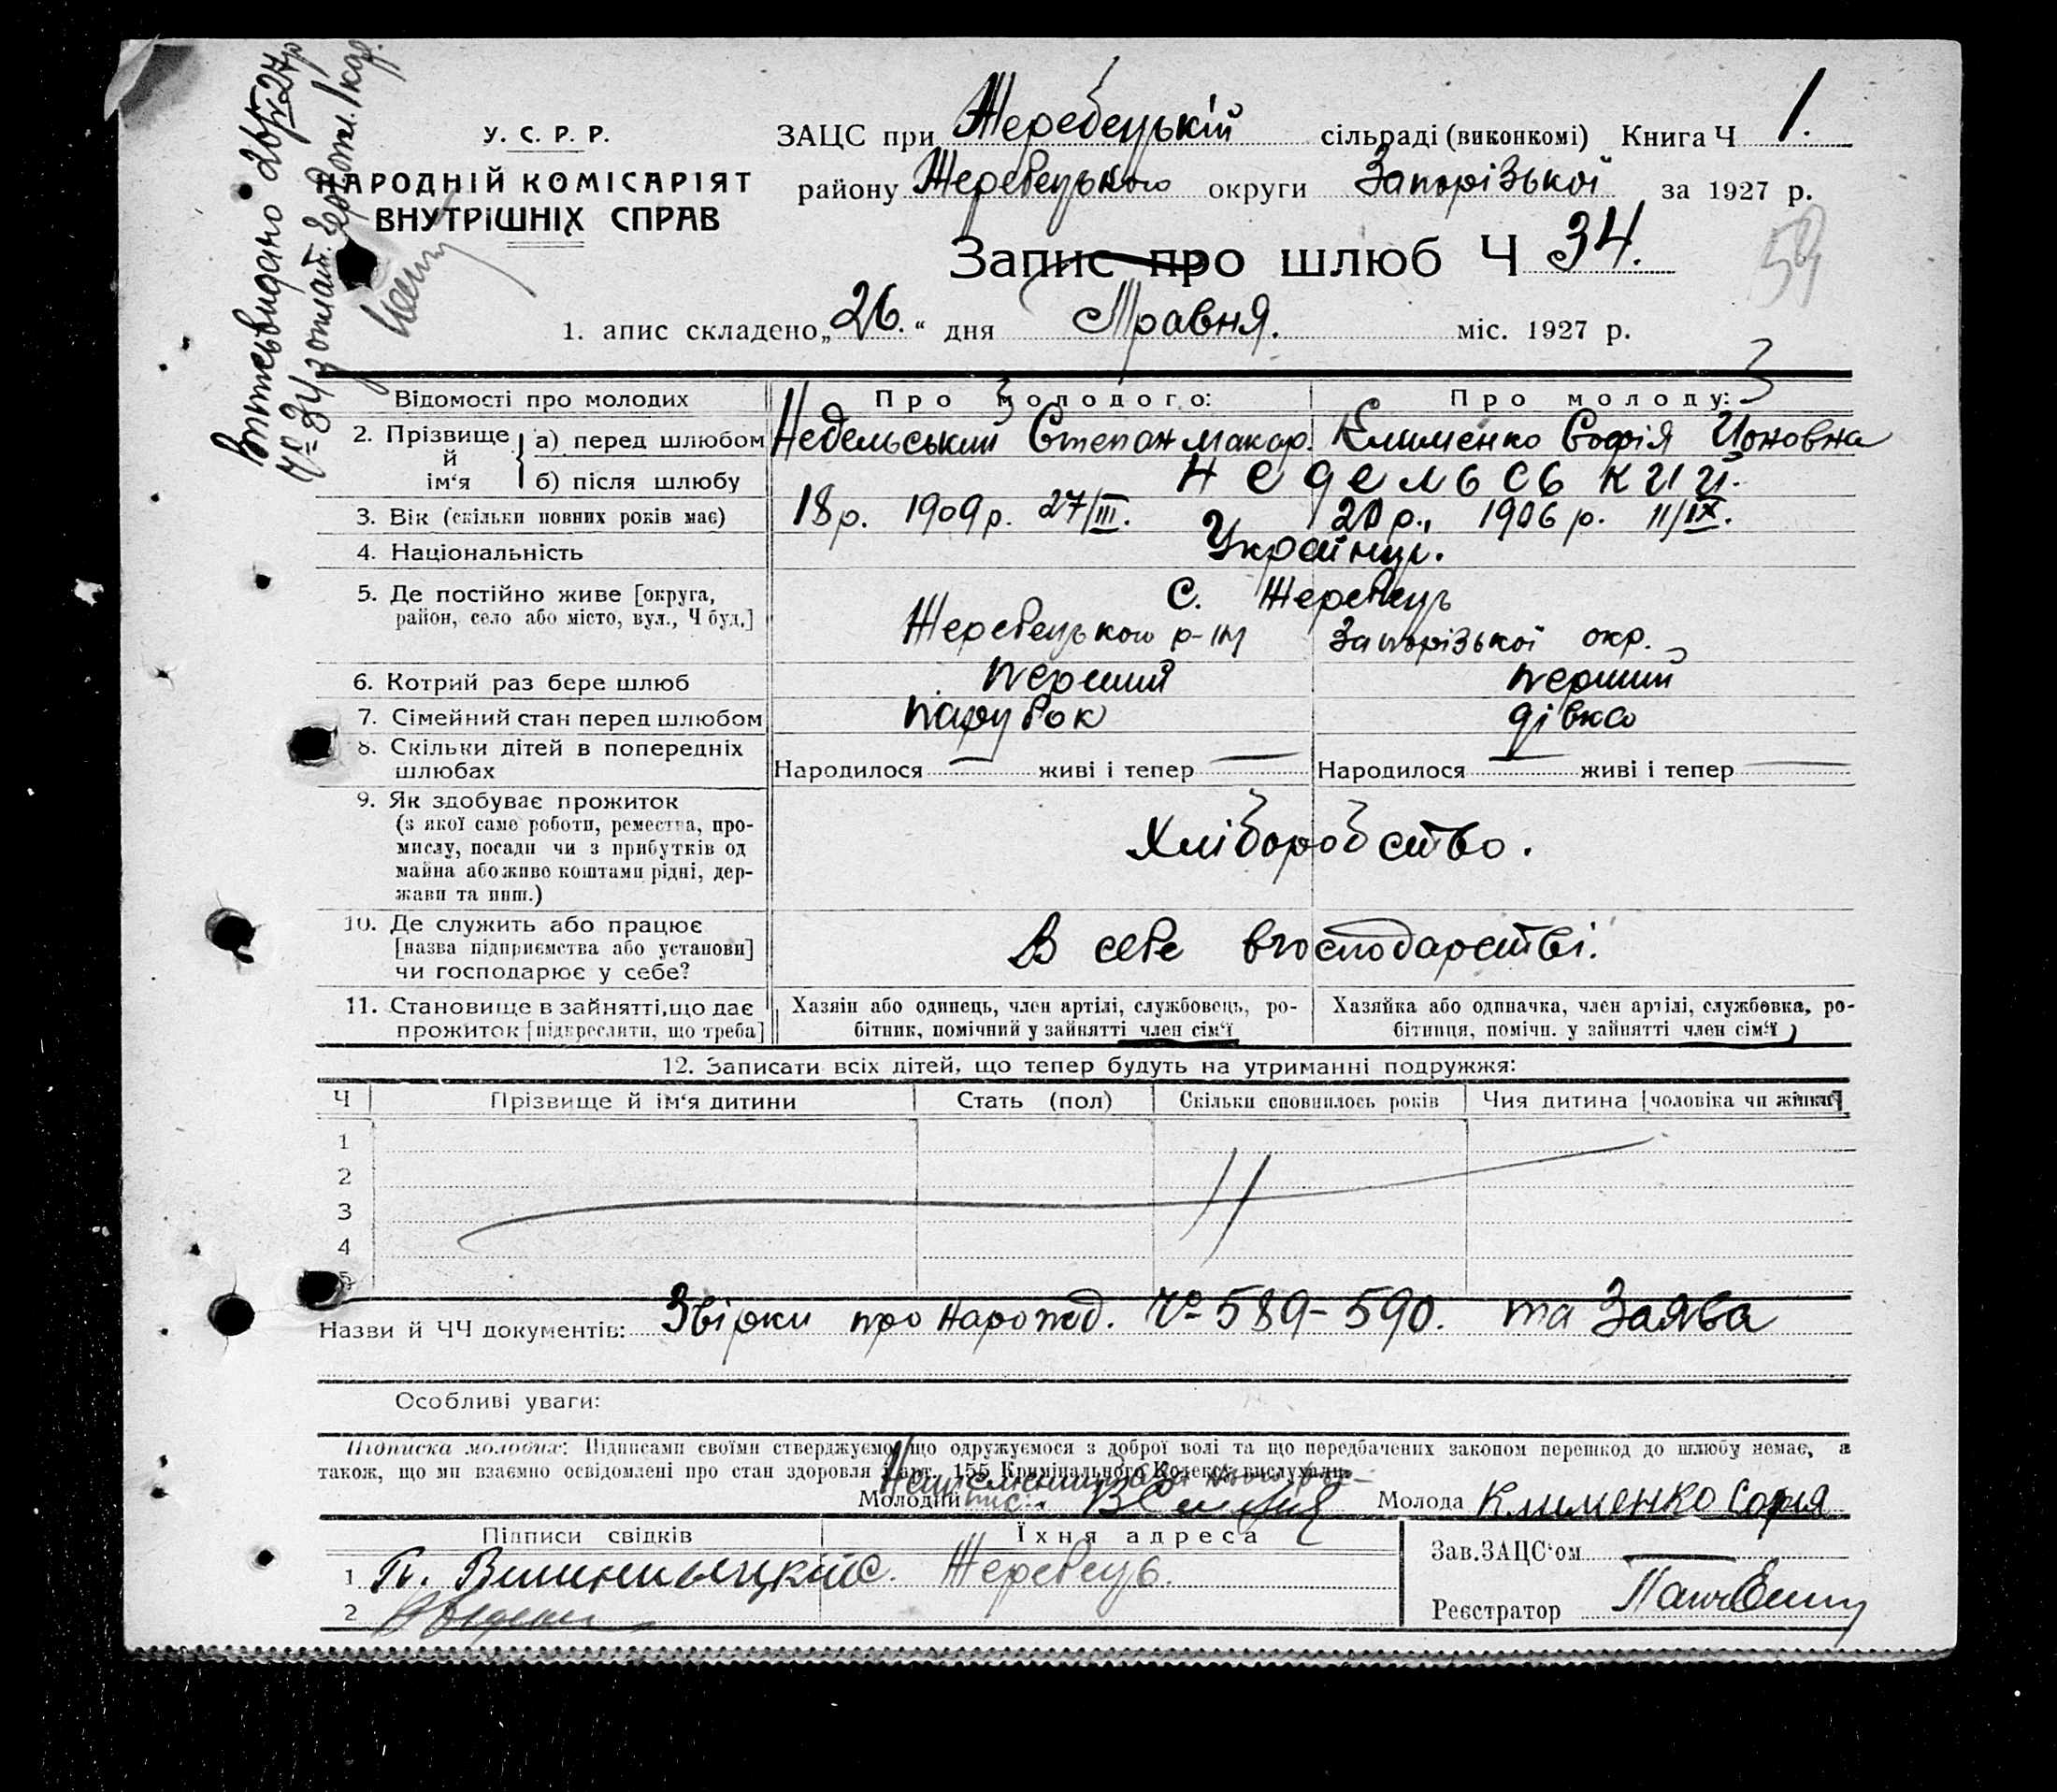 Витяг видано 26/V 27р
№ 34
У. С. Р. Р.
НАРОДНІЙ КОМІСАРІЯТ
ВНУТРІШНІХ СПРАВ
ЗАЦС при Жеребецькій сільраді (виконкомі) Книга Ч 1.
району Жеребецького округи Запорізької за 1927 р.
Запис про шлюб Ч 34.
59
1. апис складено „26.“ дня Травня. міс. 1927 р.
Відомості про молодих
Про молодого:
Про молоду:
2. Прізвище й ім‘я
а) перед шлюбом
Недельський Степан Макар.
Клименко Софія Йоновна
б) після шлюбу
Недельський.
3. Вік (скільки повних років має)
18 р. 1909 р. 27/III.
20 р., 1906 р. 11/IX.
4. Національність
Українці.
5. Де постійно живе [округа,
район, село або місто, вул., Ч буд.]
С. Жеребець
Жеребецького р-ну
Запорізької окр.
6. Котрий раз бере шлюб
перший
перший
7. Сімейний стан перед шлюбом
парубок
дівка
8. Скільки дітей в попередніх
шлюбах
Народилося — живі і тепер —
Народилося — живі і тепер —
9. Як здобуває прожиток
(з якої саме роботи, ремества, про-
мислу, посади чи з прибутків од
майна або живе коштами рідні, дер-
жави та инш.)
Хліборобство.
10. Де служить або працює
[назва підприємства або установи]
чи господарює у себе?
В себе в господарстві.
11. Становище в зайнятті, що дає
прожиток [підкреслити, що треба]
Хазяїн або одинець, член артілі, службовець, ро-
бітник, помічний у зайнятті член сім‘ї
Хазяйка або одиначка, член артілі, службовка, ро-
бітниця, помічн. у зайнятті член сім‘ї
12. Записати всіх дітей, що тепер будуть на утриманні подружжя:
Ч
Прізвище й ім‘я дитини
Стать (пол)
Скільки сповнилось років
Чия дитина [чоловіка чи жінки]
1
2
3
4
5
Назви й ЧЧ документів: Звірки про народ. № 589-590. та Заява
Особливі уваги:
Підписка молодих: Підписами своїми стверджуємо, що одружуємося з доброї волі та що передбачених законом перешкод до шлюбу немає, а
також, що ми взаємно освідомлені про стан здоровля і арт. 155 Кримінального Кодексу вислухали.
Молодий
Молода Клименко Софія
Підписи свідків
Їхня адреса
Зав. ЗАЦС‘ом —
1
с. Жеребець.
2
Реєстратор